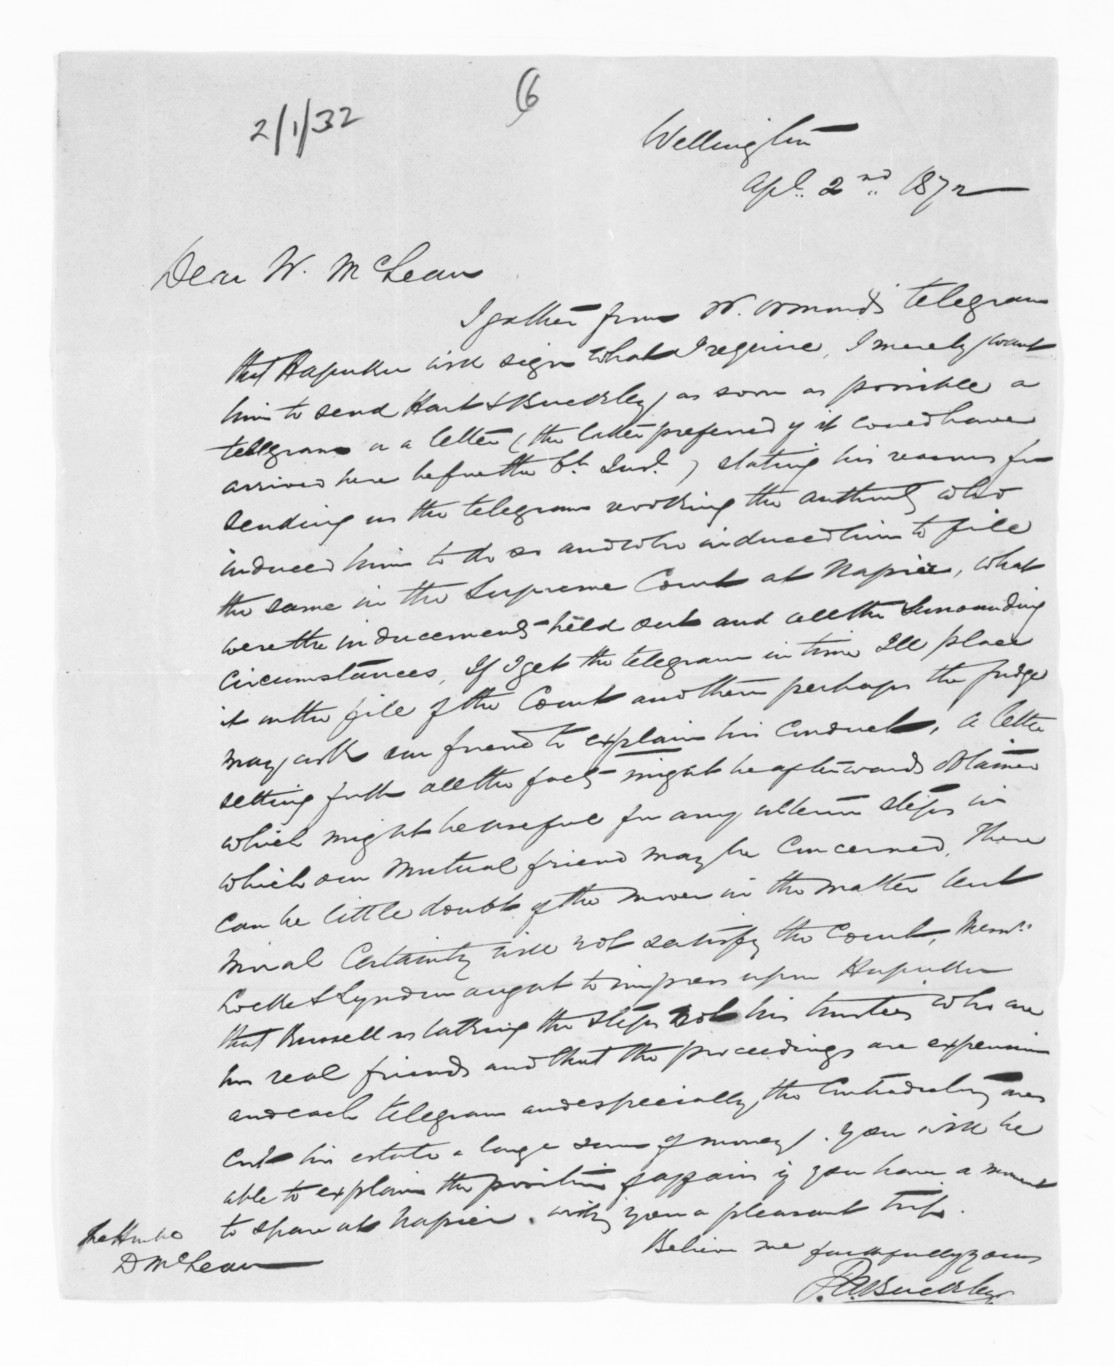 2/1/32
6
Wellington
Apl. 2nd 1872
Dear Mr. McLean
I gather from Mr. Ormond's telegram
that Hapuku will sign what I require, I merely want
him to send Hart & Buckley, as soon as possible a
telegram or a letter (the latter preferred if it could have
arrived here before the 6th Inst.) stating his reasons for
sending us the telegram revoking the authority who
induced him to do so and who induced him to file
the same in the Supreme Court at Napier, what
were the inducements held out and all the surrounding
circumstances. If I get the telegram in time Ill place
it on the file of the Court and then perhaps the Judge
may ask our friend to explain his conduct, a letter
setting forth all the facts might be afterwards obtained
which might be useful for any ulterior steps in
which our mutual friend may be concerned. There
can be little doubt of the mover in the matter but
moral certainty will not satisfy the Court, Messrs.
Locke & Lyndon ought to impress upon Hapuku
that Russell is taking the steps not his trustees who are
his real friends and that the proceedings are expensive
and each telegram and especially the contradictory ones
cost his estate a large sum of money. You will be
able to explain the position of affairs if you have a moment
to spare at Napier. wishing you a pleasant trip.
Believe me faithfully yours
P.A. Buckley
The Honble
D McLean